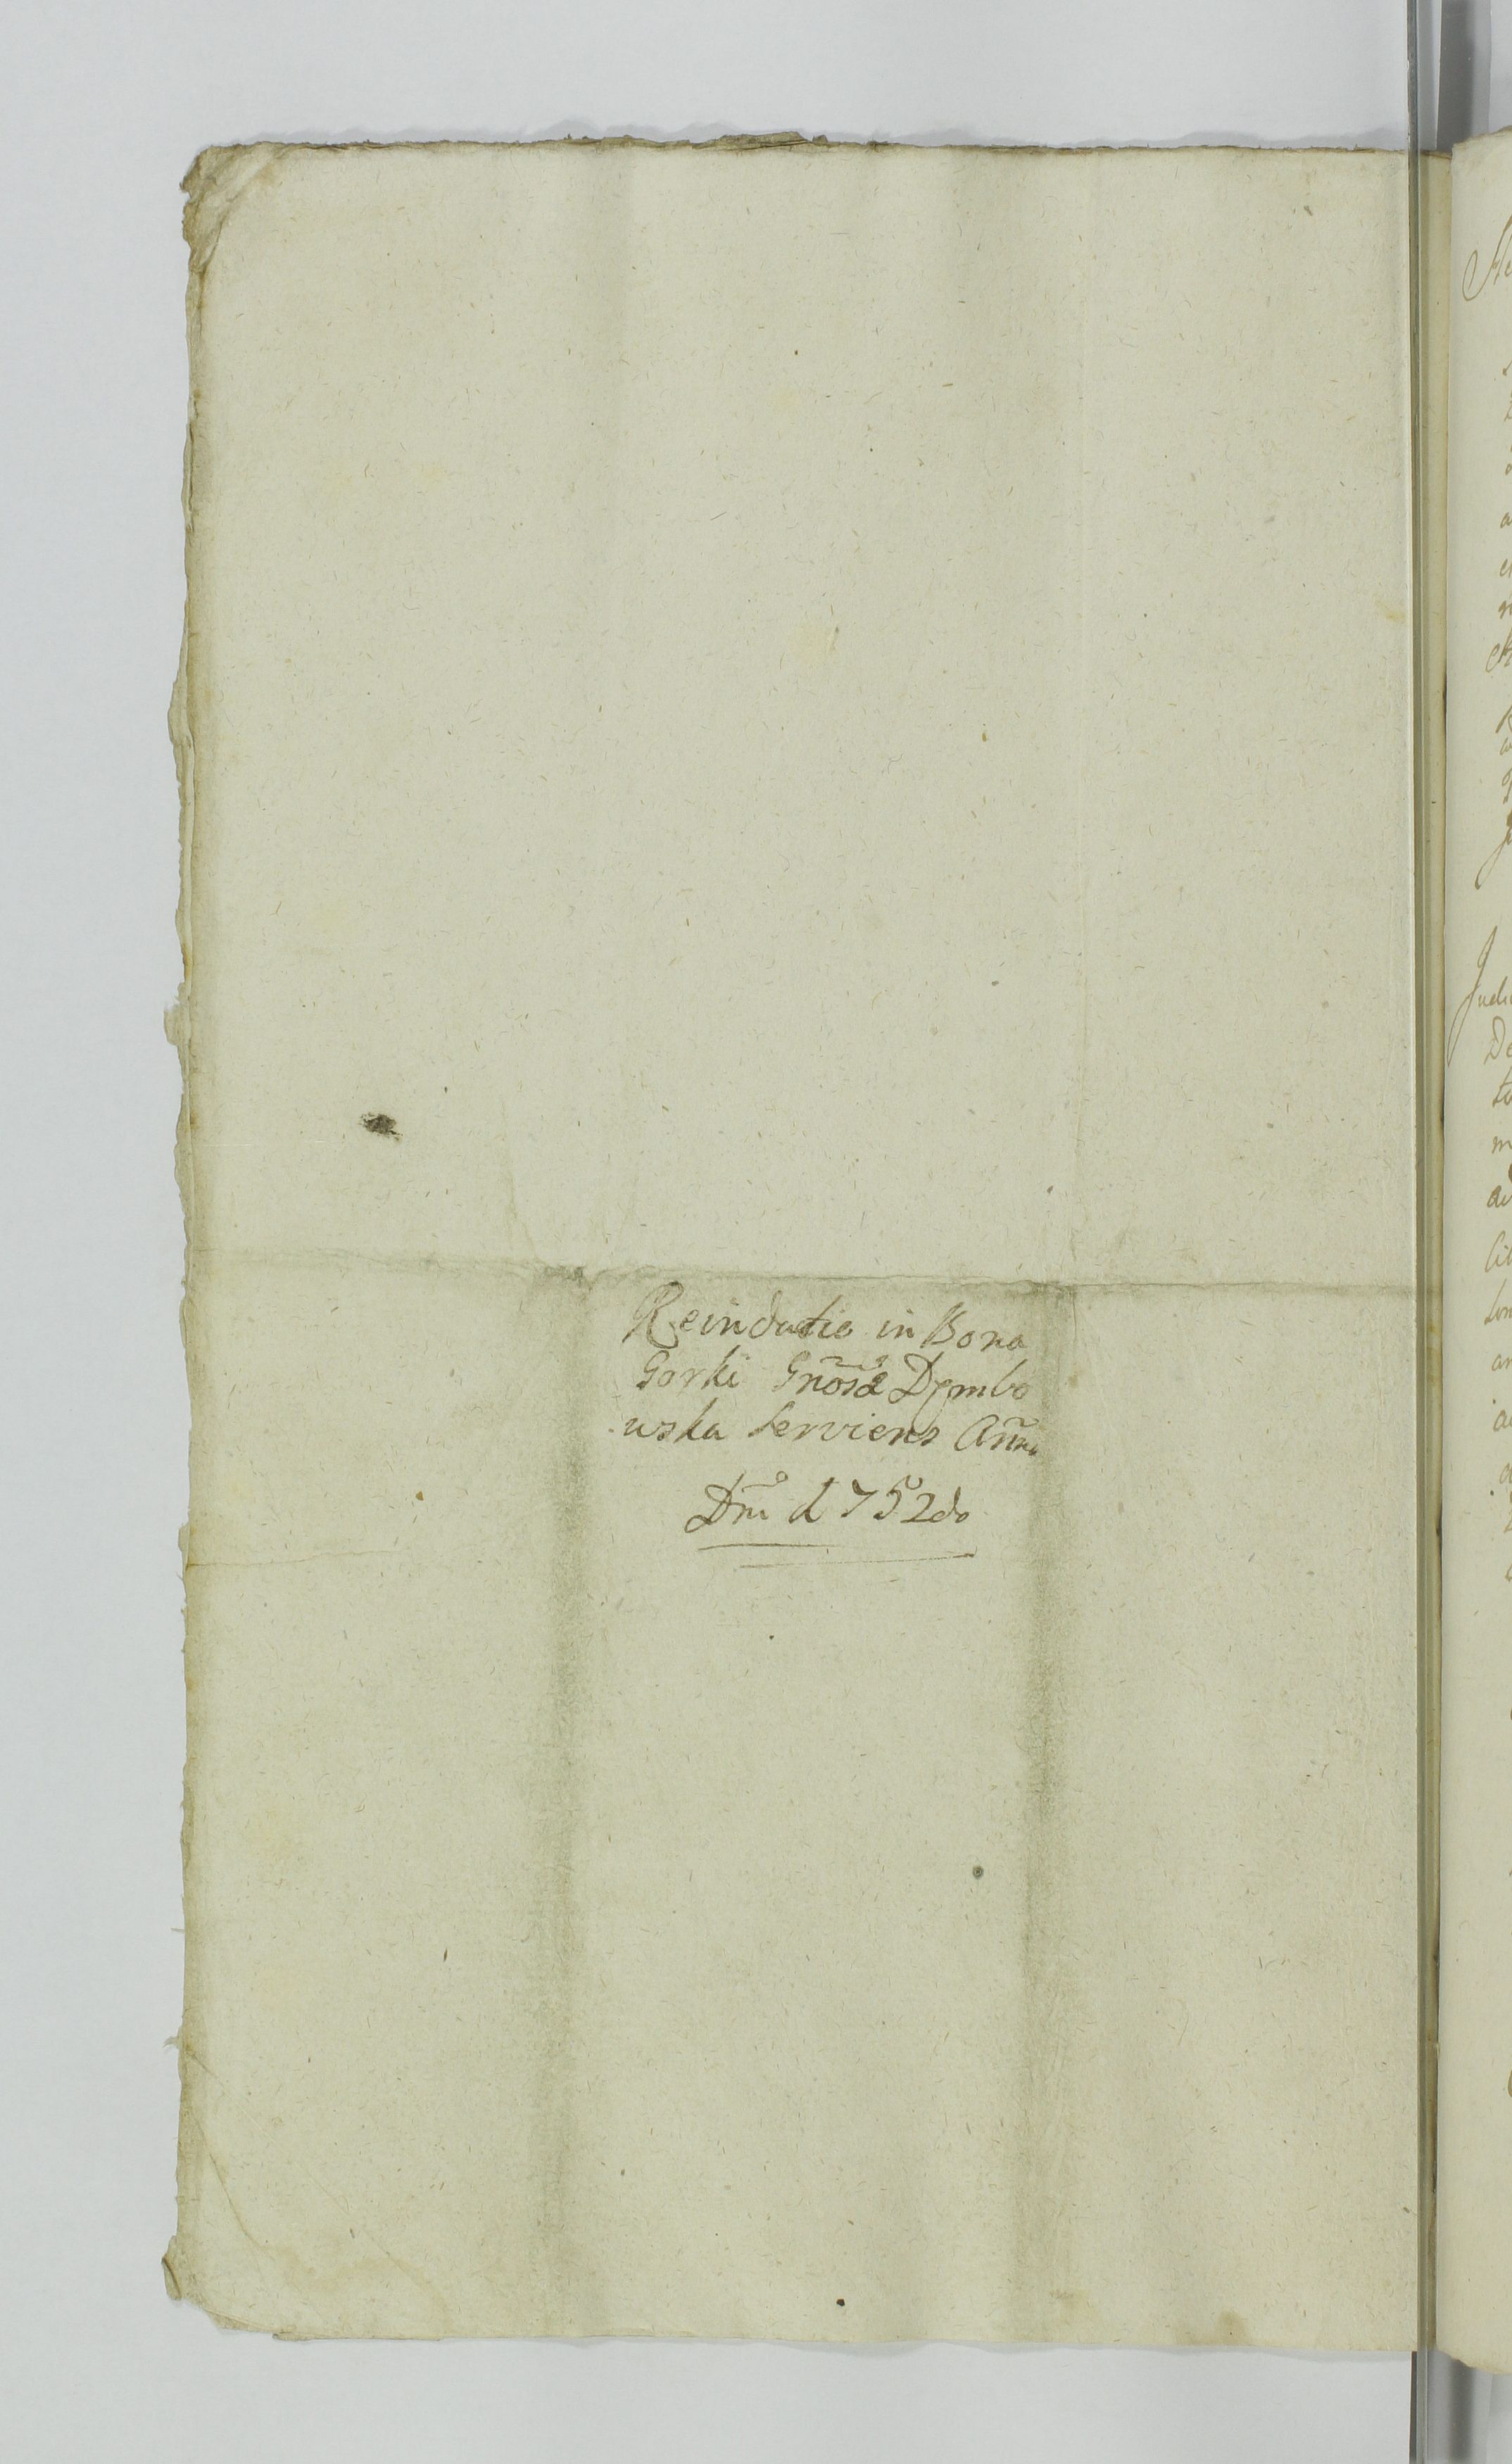 Reinductio in Bona
Gorki Gñosæ Dembo
wska serviens Añno
Dñi 1752do